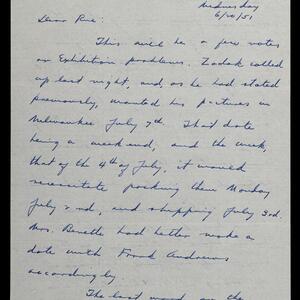 Wednesday
6/20/51
Dear Rue:
This will be a few notes
on Exhibition problems. Zadok called
up last night, and, as he had stated
previously, wanted his pictures in
Milwaukee July 7th. That date
being a weekend, and the week
that of the 4th of July, it would
necessitate packing them Monday
July 2nd, and shipping July 3rd.
Mrs. Benette had better make a
date with Frank Andrews
accordingly.
The last word on the